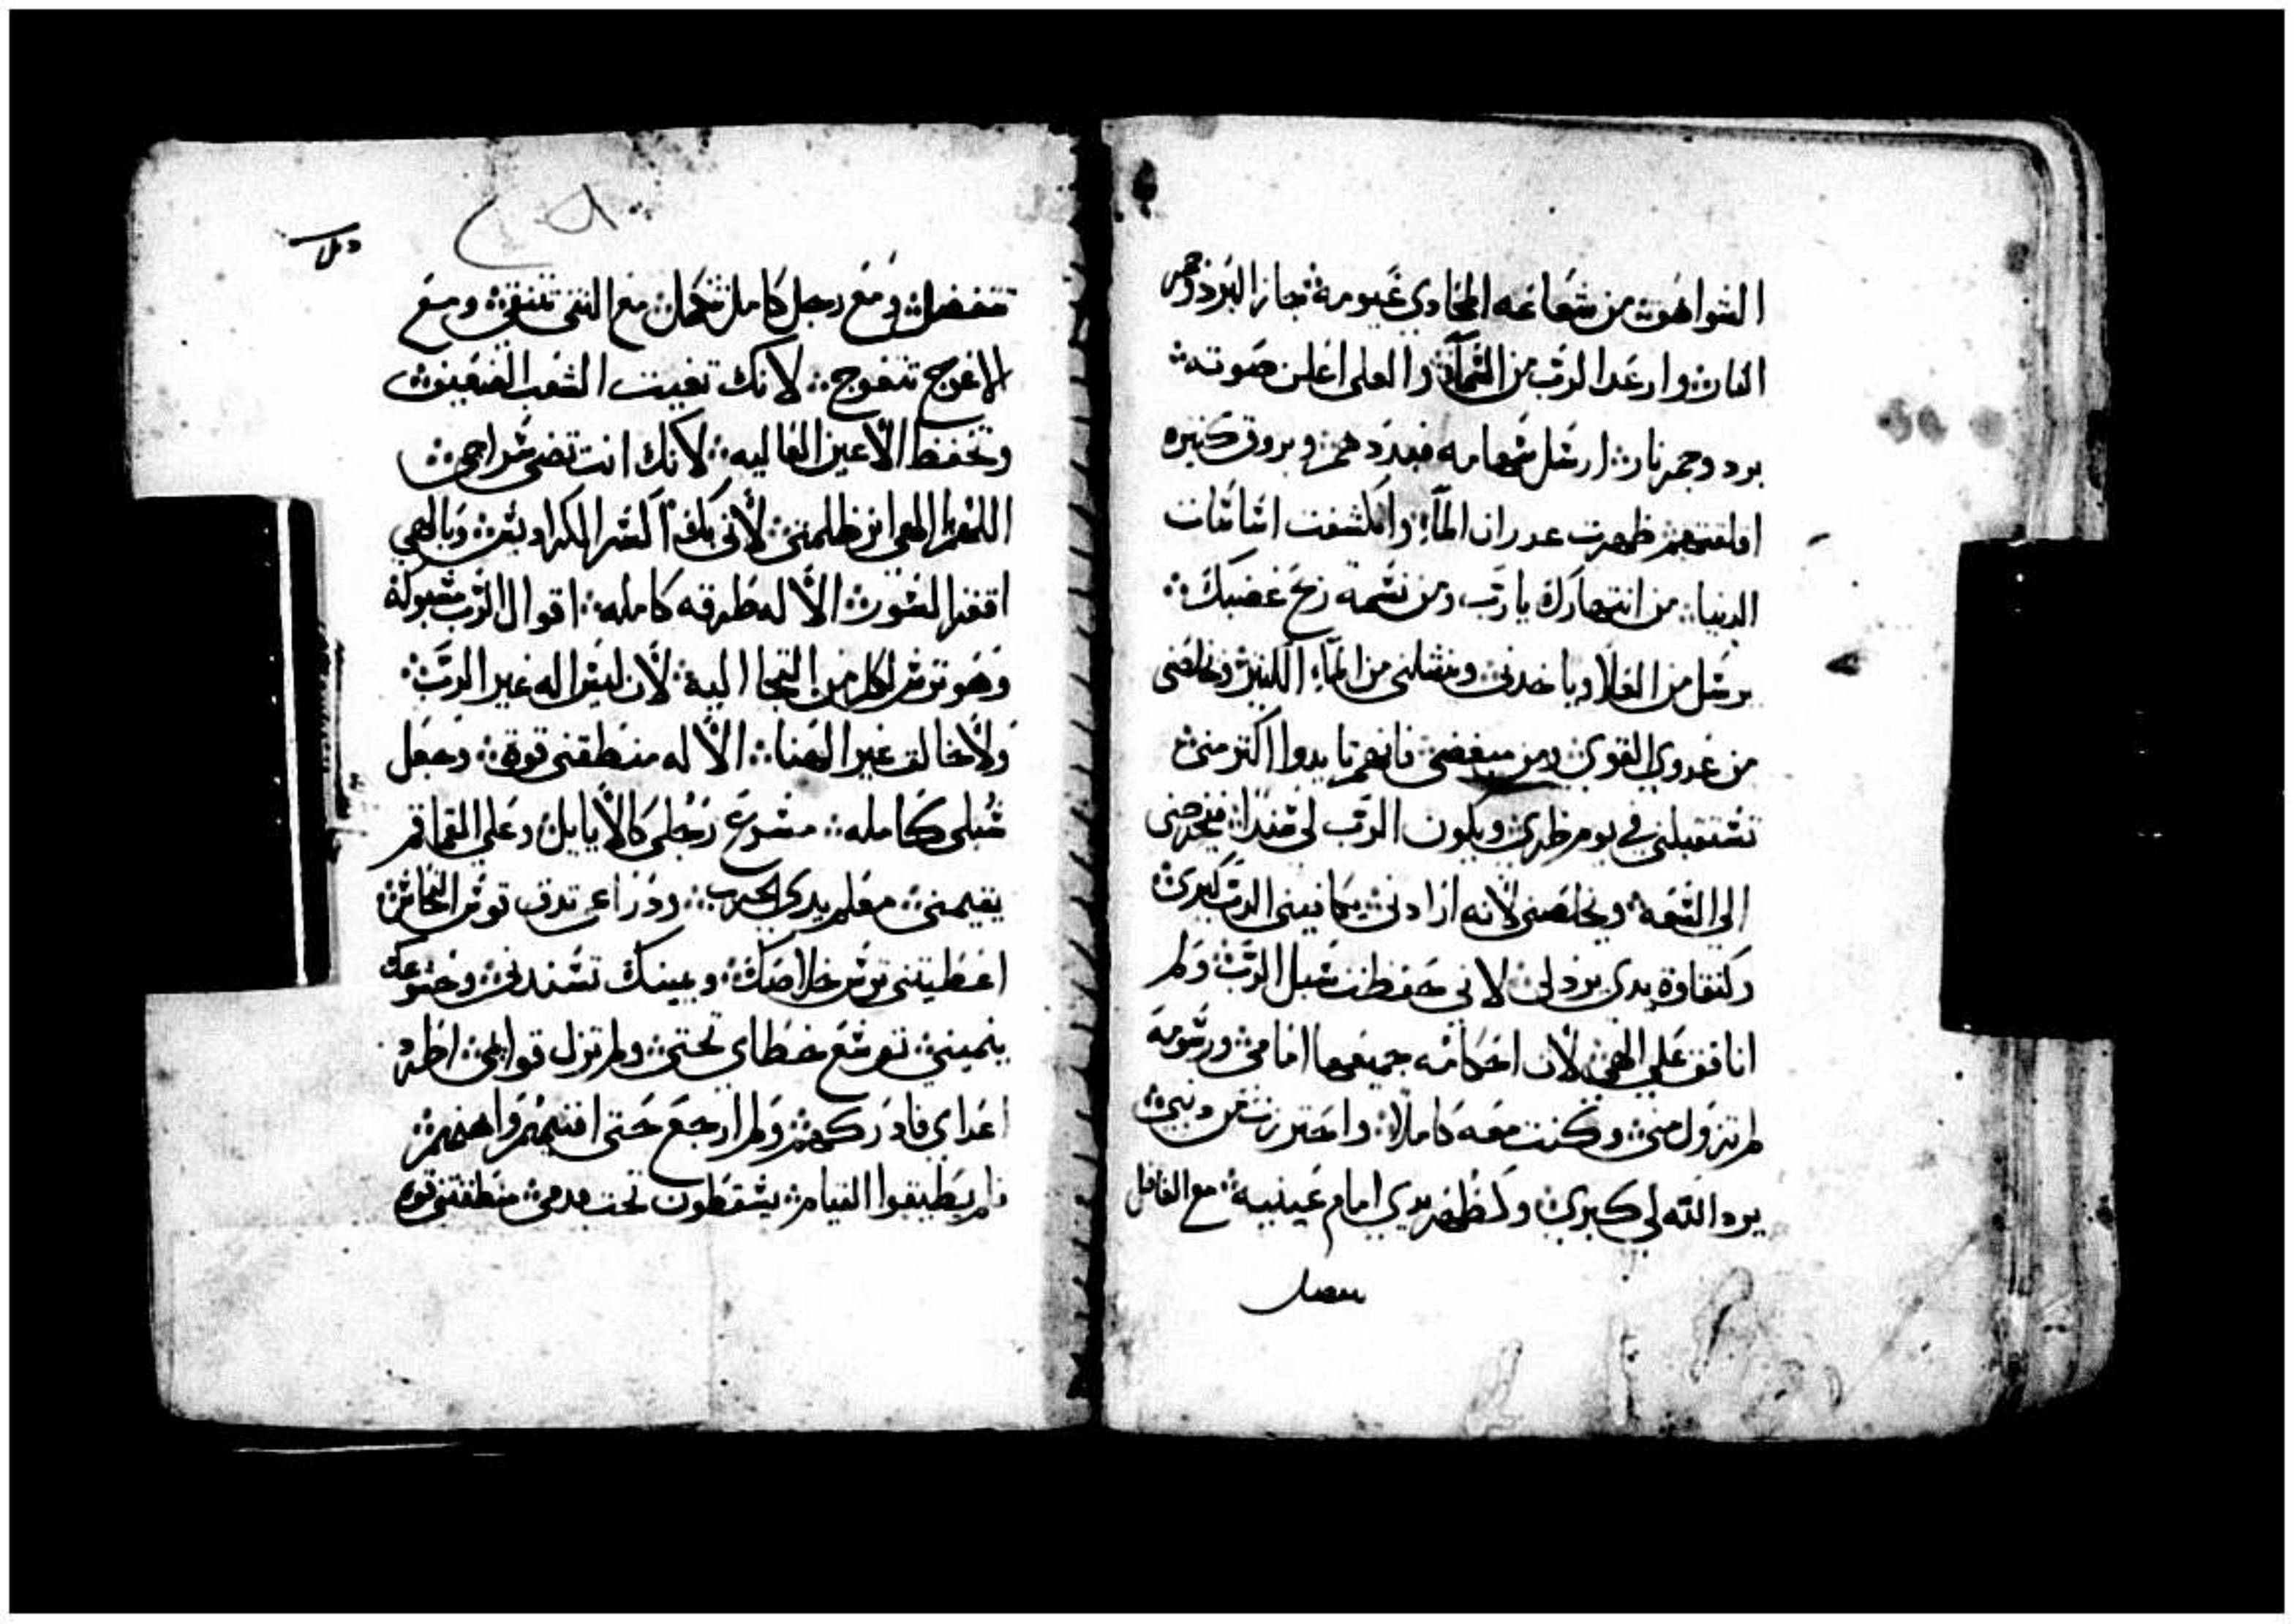 الشوا هوت من شعاعه المحادي غيومه جاز البرد وجمر
النار وارعد الرب من السماء والعلي اعلن صوته
برد وجمر نار ارسل سهامه فبددهم وبروق كثيره
اقلقتهم ظهرت غدران الماء وانكشفت اساسات
الدنيا من انتهارك يا رب ومن نسمة ريح غضبك
يرسل من العلا وياخدني وينشلني من الماء الكثير ويخلصني
من عدوي القوي ومن مبغضي فانهم تايدوا اكتر مني
تستقبلني في يوم ظري ويكون الرب لي سندا فيخرجني
الى السعه ويخلصني لانه ارادني يكافيني الرب كبري
وكنقاوة يدي يرد لي لاني حفظت سبل الرب ولم
انافق على الهي لان احكامه جميعها امامي ورسومه
لم تزول مني وكنت معه كاملا واحترزت من دنبي
يرد الله لي كبري وكطهر يدي امام عينيه مع الفاضل
تتفضل
تتفضل ومع رجل كامل تكمل مع النقي تتنقى ومع
الاعوج تتعوج لانك تغيت الشعب الضعيف
وتخفظ الاعين العاليه لانك انت تضي سراجي
اللهم الهي انر ظلمتي لاني بك اكسر الكراديس وبالهي
اقفز السور الاله طرقه كامله اقوال الرب مقبولة
وهو ترس لكل من التجا اليه لان ليس اله غير الرب
ولا خالق غير الهنا الاله منطقني قوة وجعل
سبلي كامله مسرع رجلي كالايايل وعلى القماقم
يقيمني معلم يدي الحرب ودراعي تدق توس النحاس
اعطيتني ترس خلاصك ويمينك تسندني وخشوعك
ينميني توسع خطاي تحتي ولم تزل قوايمي اطرد
اعداي فادركهم ولم ارجع حتى افنيهم واهنهم
فلم يطيقوا القيام يسقطون تحت قدمي منطقتني قوه